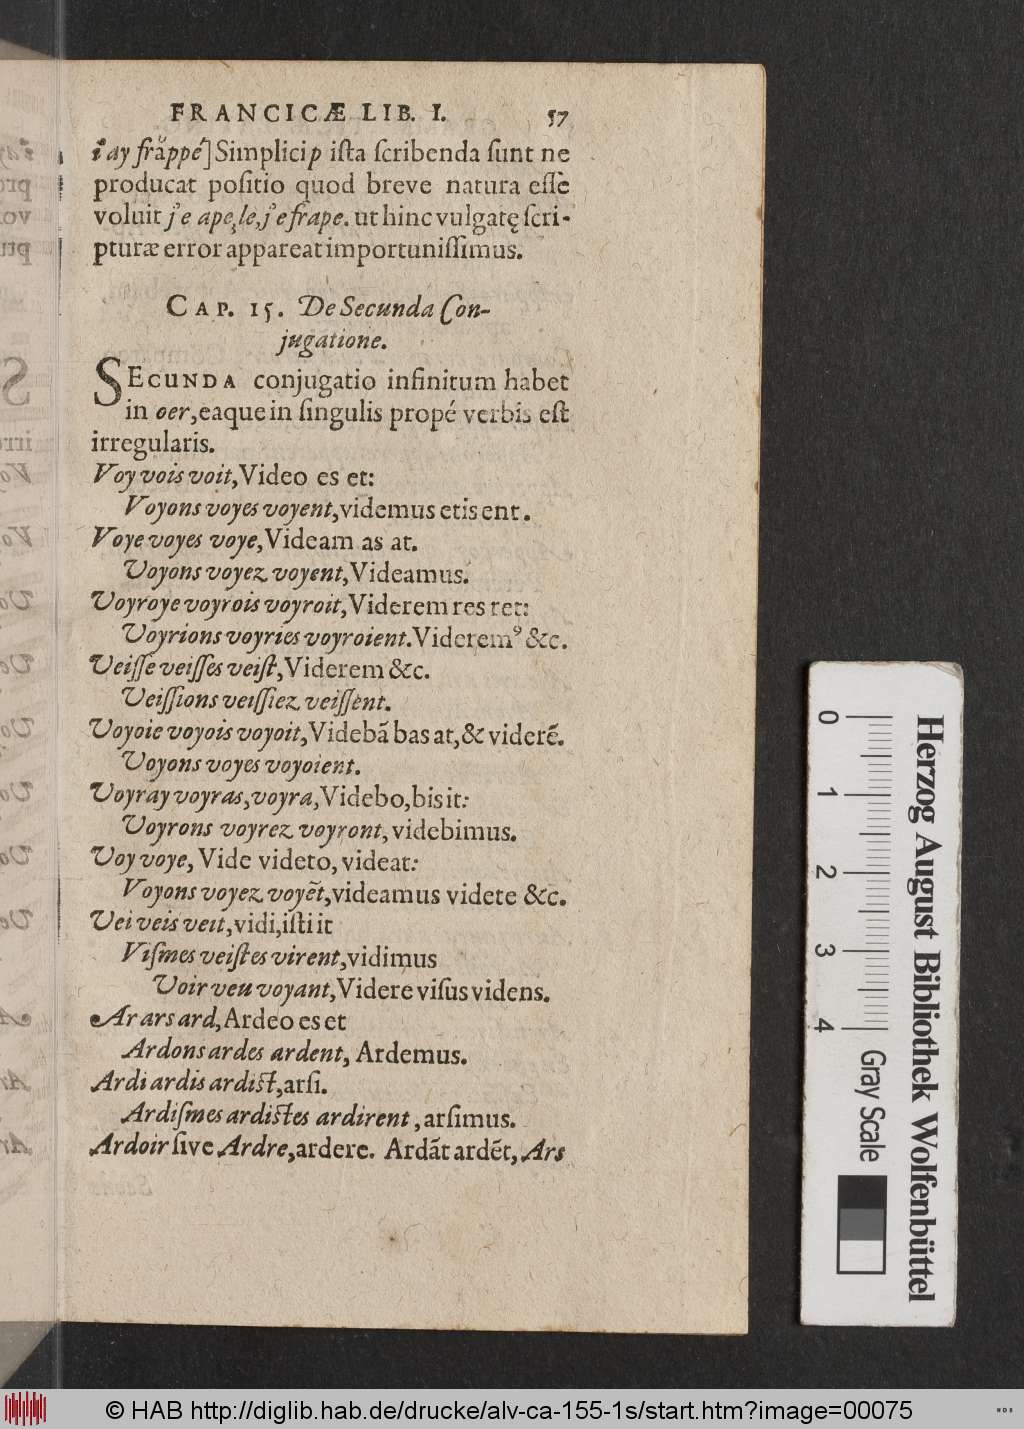 FRANCICÆ LIB. I. 57
i'ay frăppé] Simplici p iſta ſcribenda ſunt ne
producat poſitio quod breve natura eſſe
voluit j'e apęle, j'e frape. ut hinc vulgatę ſcri-
pturæ error appareat importuniſſimus.
CAP. 15. De Secunda Con-
jugatione.
SECUNDA conjugatio infinitum habet
in oer, eaque in ſingulis propé verbis eſt
irregularis.
Voy vois voit, Video es et:
Voyons voyes voyent, videmus etis ent.
Voye voyes voye, Videam as at.
Voyons voyez voyent, Videamus.
Voyroye voyrois voyroit, Viderem res ret:
Voyrions voyries voyroient. Viderem⁹ &c.
Veiſſe veiſſes veiſt, Viderem &c.
Veiſſions veiſſiez veiſſent.
Voyoie voyois voyoit, Videbā bas at, & viderē.
Voyons voyes voyoient.
Voyray voyras, voyra, Videbo, bis it:
Voyrons voyrez voyront, videbimus.
Voy voye, Vide videto, videat:
Voyons voyez voyēt, videamus videte &c.
Vei veis veit, vidi, iſti it
Viſmes veiſtes virent, vidimus
Voir veu voyant, Videre viſus videns.
Ar ars ard, Ardeo es et
Ardons ardes ardent, Ardemus.
Ardi ardis ardiſt, arſi.
Ardiſmes ardiſtes ardirent, arſimus.
Ardoir ſive Ardre, ardere. Ardāt ardēt, Ars
0
1
2
3
4
Gray Scale
Herzog August Bibliothek Wolfenbüttel
© HAB http://diglib.hab.de/drucke/alv-ca-155-1s/start.htm?image=00075